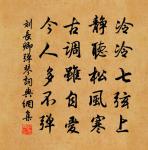 泠泠七弦上
靜聽松風寒
古調雖自愛
今人多不彈
刘长卿弹琴詞典網集